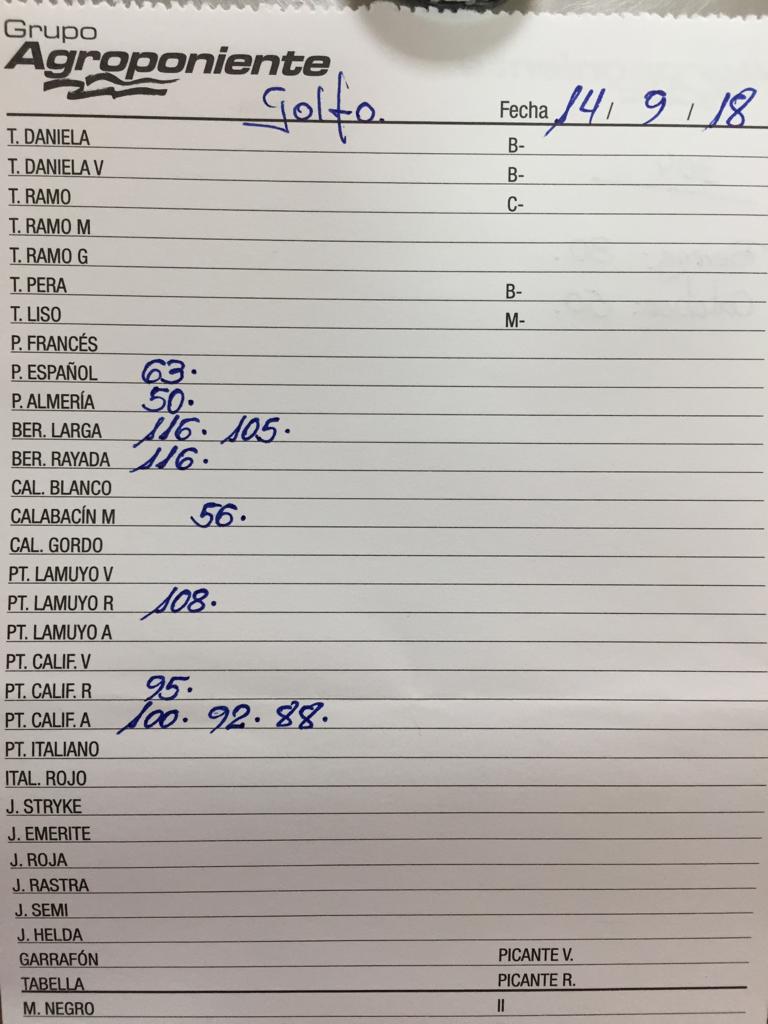 Grupo
Agroponiente
Golfo. Fecha 14 / 9 / 18
T. DANIELA B-
T. DANIELA V B-
T. RAMO C-
T. RAMO M
T. RAMO G
T. PERA B-
T. LISO M-
P. FRANCÉS
P. ESPAÑOL 63.
P. ALMERÍA 50.
BER. LARGA 116. 105.
BER. RAYADA 116.
CAL. BLANCO
CALABACÍN M 56.
CAL. GORDO
PT. LAMUYO V
PT. LAMUYO R 108.
PT. LAMUYO A
PT. CALIF. V
PT. CALIF. R 95.
PT. CALIF. A 100. 92. 88.
PT. ITALIANO
ITAL. ROJO
J. STRYKE
J. EMERITE
J. ROJA
J. RASTRA
J. SEMI
J. HELDA
GARRAFÓN PICANTE V.
TABELLA PICANTE R.
M. NEGRO II